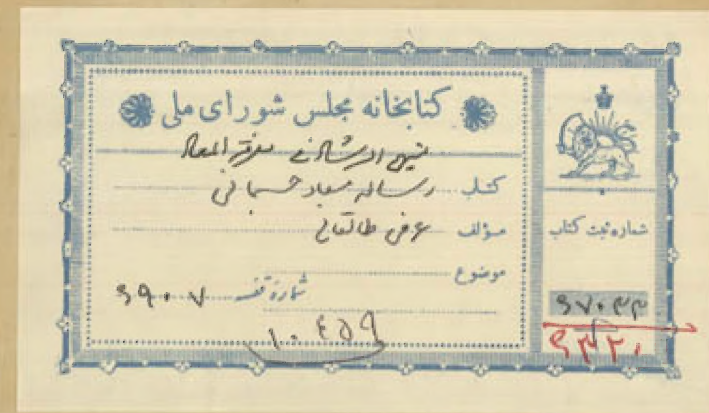 کتابخانه مجلس شورای ملی
معرفة المعاد
کتاب رساله معاد جسمانی
مؤلف طالقانی
موضوع
شماره قفسه ۶۹۰۷
۱۰۴۵۹
شماره ثبت کتاب
۶۷۰۳۳
۹۳۲۰